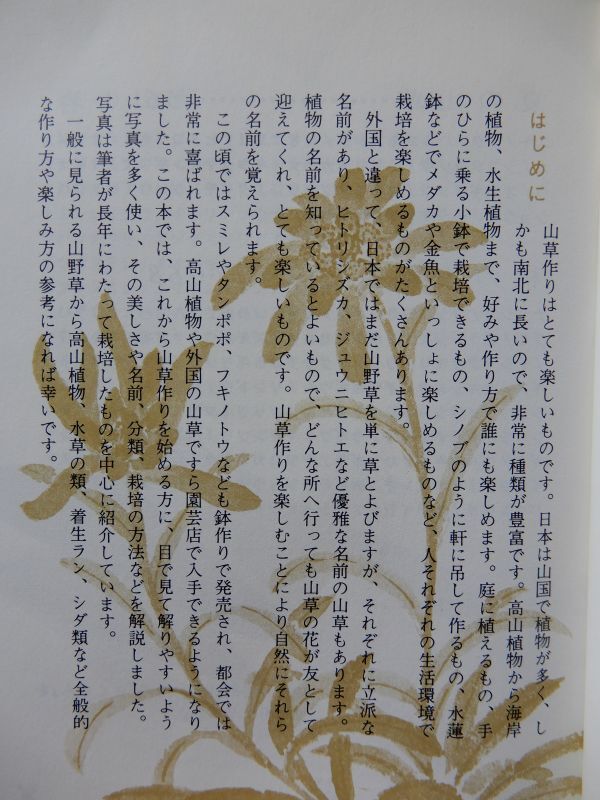 はじめに
山草作りはとても楽しいものです。日本は山国で植物が多く、し
かも南北に長いので、非常に種類が豊富です。高山植物から海岸
の植物、水生植物まで、好みや作り方で誰にも楽しめます。庭に植えるもの、手
のひらに乗る小鉢で栽培できるもの、シノブのように軒に吊して作るもの、水蓮
鉢などでメダカや金魚といっしょに楽しめるものなど、人それぞれの生活環境で
栽培を楽しめるものがたくさんあります。
外国と違って、日本ではまだ山野草を単に草とよびますが、それぞれに立派な
名前があり、ヒトリシズカ、ジュウニヒトエなど優雅な名前の山草もあります。
植物の名前を知っているとよいもので、どんな所へ行っても山草の花が友として
迎えてくれ、とても楽しいものです。山草作りを楽しむことにより自然にそれら
の名前を覚えられます。
この頃ではスミレやタンポポ、フキノトウなども鉢作りで発売され、都会では
非常に喜ばれます。高山植物や外国の山草ですら園芸店で入手できるようになり
ました。この本では、これから山草作りを始める方に、目で見て解りやすいよう
に写真を多く使い、その美しさや名前、分類、栽培の方法などを解説しました。
写真は筆者が長年にわたって栽培したものを中心に紹介しています。
一般に見られる山野草から高山植物、水草の類、着生ラン、シダ類など全般的
な作り方や楽しみ方の参考になれば幸いです。